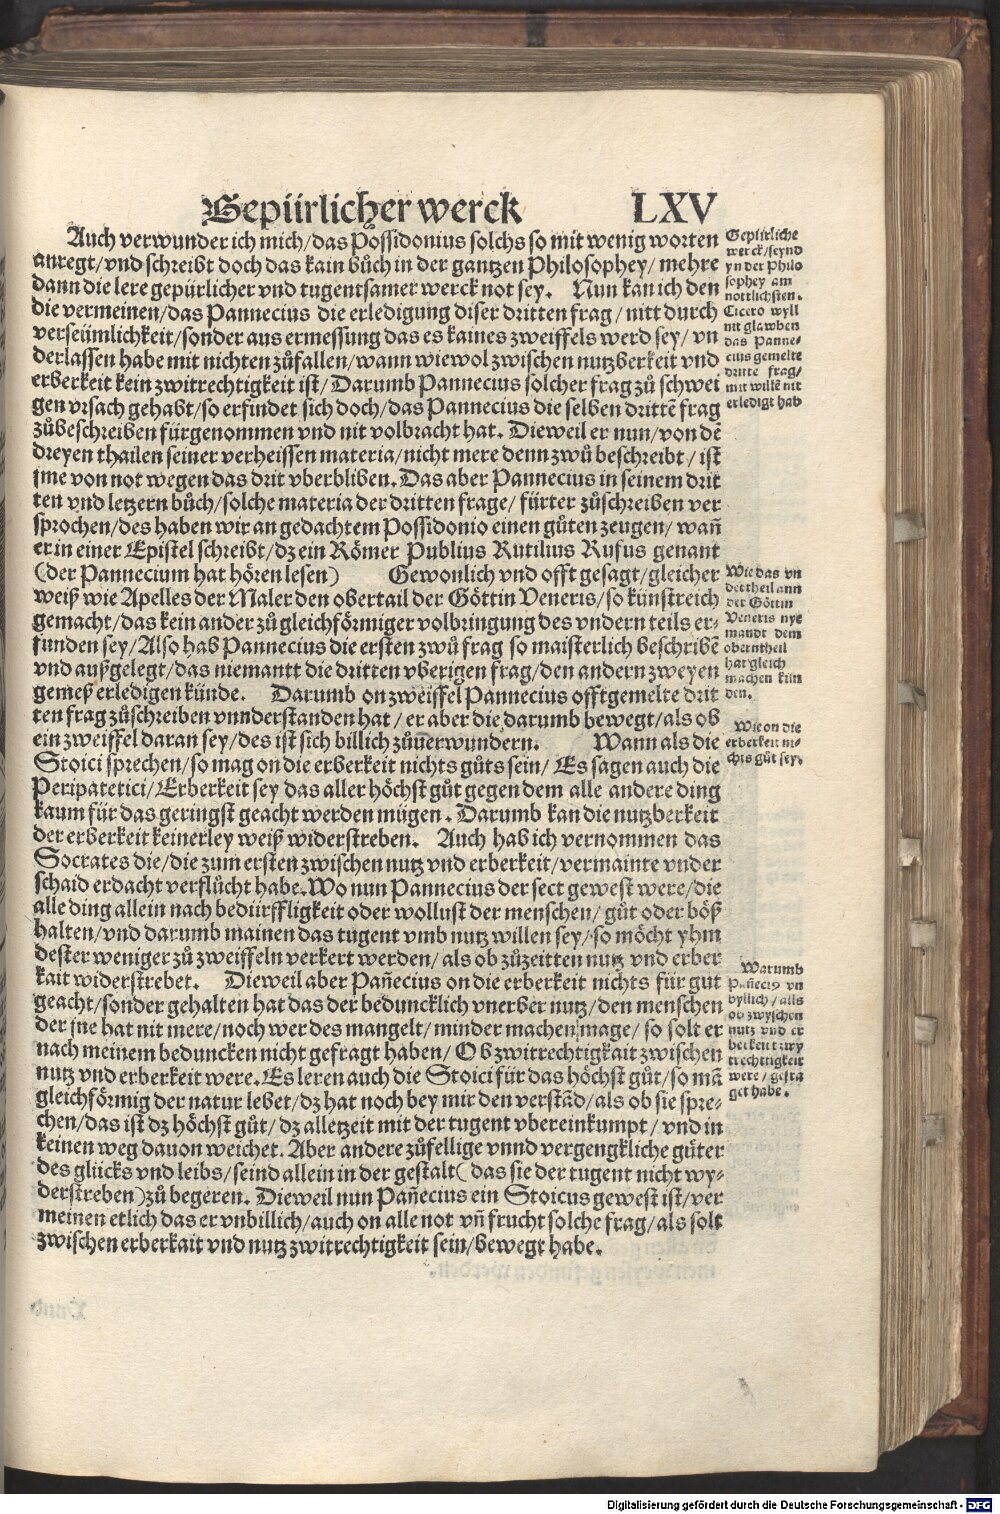 Gepürlicher werck LXV
Auch verwunder ich mich/das Possidonius solchs so mit wenig worten
anregt/vnd schreibt doch das kain bůch in der gantzen Philosophey/mehre
dann die lere gepürlicher vnd tugentsamer werck not sey. Nun kan ich den
die vermeinen/das Pannecius die erledigung diser dritten frag/nitt durch
verseümlichkeit/sonder aus ermessung das es kaines zweiffels werd sey/vn
derlassen habe mit nichten zůfallen/wann wiewol zwischen nutzberkeit vnd
erberkeit kein zwitrechtigkeit ist/Darumb Pannecius solcher frag zů schwei
gen vrsach gehabt/so erfindet sich doch/das Pannecius die selben drittẽ frag
zůbeschreiben fürgenommen vnd nit volbracht hat. Dieweil er nun/von dẽ
dreyen thailen seiner verheissen materia/nicht mere denn zwů beschreibt/ist
jme von not wegen das drit vberbliben. Das aber Pannecius in seinem drit
ten vnd letzern bůch/solche materia der dritten frage/fürter zůschreiben ver
sprochen/des haben wir an gedachtem Possidonio einen gůten zeugen/wañ
er in einer Epistel schreibt/dz ein Römer Publius Rutilius Rufus genant
(der Pannecium hat hören lesen) Gewonlich vnd offt gesagt/gleicher
weiß wie Apelles der Maler den obertail der Göttin Veneris/so künstreich
gemacht/das kein ander zů gleichförmiger volbringung des vndern teils er-
funden sey/Also hab Pannecius die ersten zwů frag so maisterlich beschribẽ
vnd außgelegt/das niemantt die dritten vberigen frag/den andern zweyen
gemeß erledigen künde. Darumb on zweiffel Pannecius offtgemelte drit
ten frag zůschreiben vnnderstanden hat/er aber die darumb bewegt/als ob
ein zweiffel daran sey/des ist sich billich zůuerwundern. Wann als die
Stoici sprechen/so mag on die erberkeit nichts gůts sein/Es sagen auch die
Peripatetici/Erberkeit sey das aller höchst gůt gegen dem alle andere ding
kaum für das geringst geacht werden mügen. Darumb kan die nutzberkeit
der erberkeit keinerley weiß widerstreben. Auch hab ich vernommen das
Socrates die/die zum ersten zwischen nutz vnd erberkeit/vermainte vnder
schaid erdacht verflücht habe. Wo nun Pannecius der sect gewest were/die
alle ding allein nach bedürffligkeit oder wollust der menschen/gůt oder böß
halten/vnd darumb mainen das tugent vmb nutz willen sey/so möcht yhm
dester weniger zů zweiffeln verkert werden/als ob zůzeitten nutz vnd erber
kait widerstrebet. Dieweil aber Pañecius on die erberkeit nichts für gut
geacht/sonder gehalten hat das der beduncklich vnerber nutz/den menschen
der jne hat nit mere/noch wer des mangelt/minder machen mage/so solt er
nach meinem beduncken nicht gefragt haben/Ob zwitrechtigkait zwischen
nutz vnd erberkeit were. Es leren auch die Stoici für das höchst gůt/so mã
gleichförmig der natur lebet/dz hat noch bey mir den verstãd/als ob sie spre-
chen/das ist dz höchst gůt/dz alletzeit mit der tugent vbereinkumpt/vnd in
keinen weg dauon weichet. Aber andere zůfellige vnnd vergengkliche gůter
des glücks vnd leibs/seind allein in der gestalt(das sie der tugent nicht wy-
derstreben)zů begeren. Dieweil nun Pañecius ein Stoicus gewest ist/ver
meinen etlich das er vnbillich/auch on alle not vñ frucht solche frag/als solt
zwischen erberkait vnd nutz zwitrechtigkeit sein/bewegt habe.
Gepürliche
werck/seynd
yn der Philo
sophey am
nottlichsten.
Cicero wyll
nit glawben
das Panne-
cius gemelte
dritte frag/
mit willẽ nit
erledigt hab
Wie das vn
dertheil ann
der Göttin
Veneris nye
mandt dem
oberntheil
hat gleich
machen kün
den.
Wie on die
erberkeit ni-
chts gůt sey.
Warumb
Pañeci9 vn
byllich/alls
ob zwyschen
nutz vnd er
berkeit zwy
trechtigkeit
were/gefra
get habe.
Digitalisierung gefördert durch die Deutsche Forschungsgemeinschaft - DFG